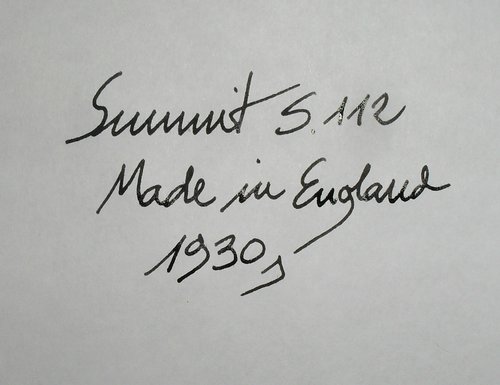 Summit S.112
Made in England
1930s